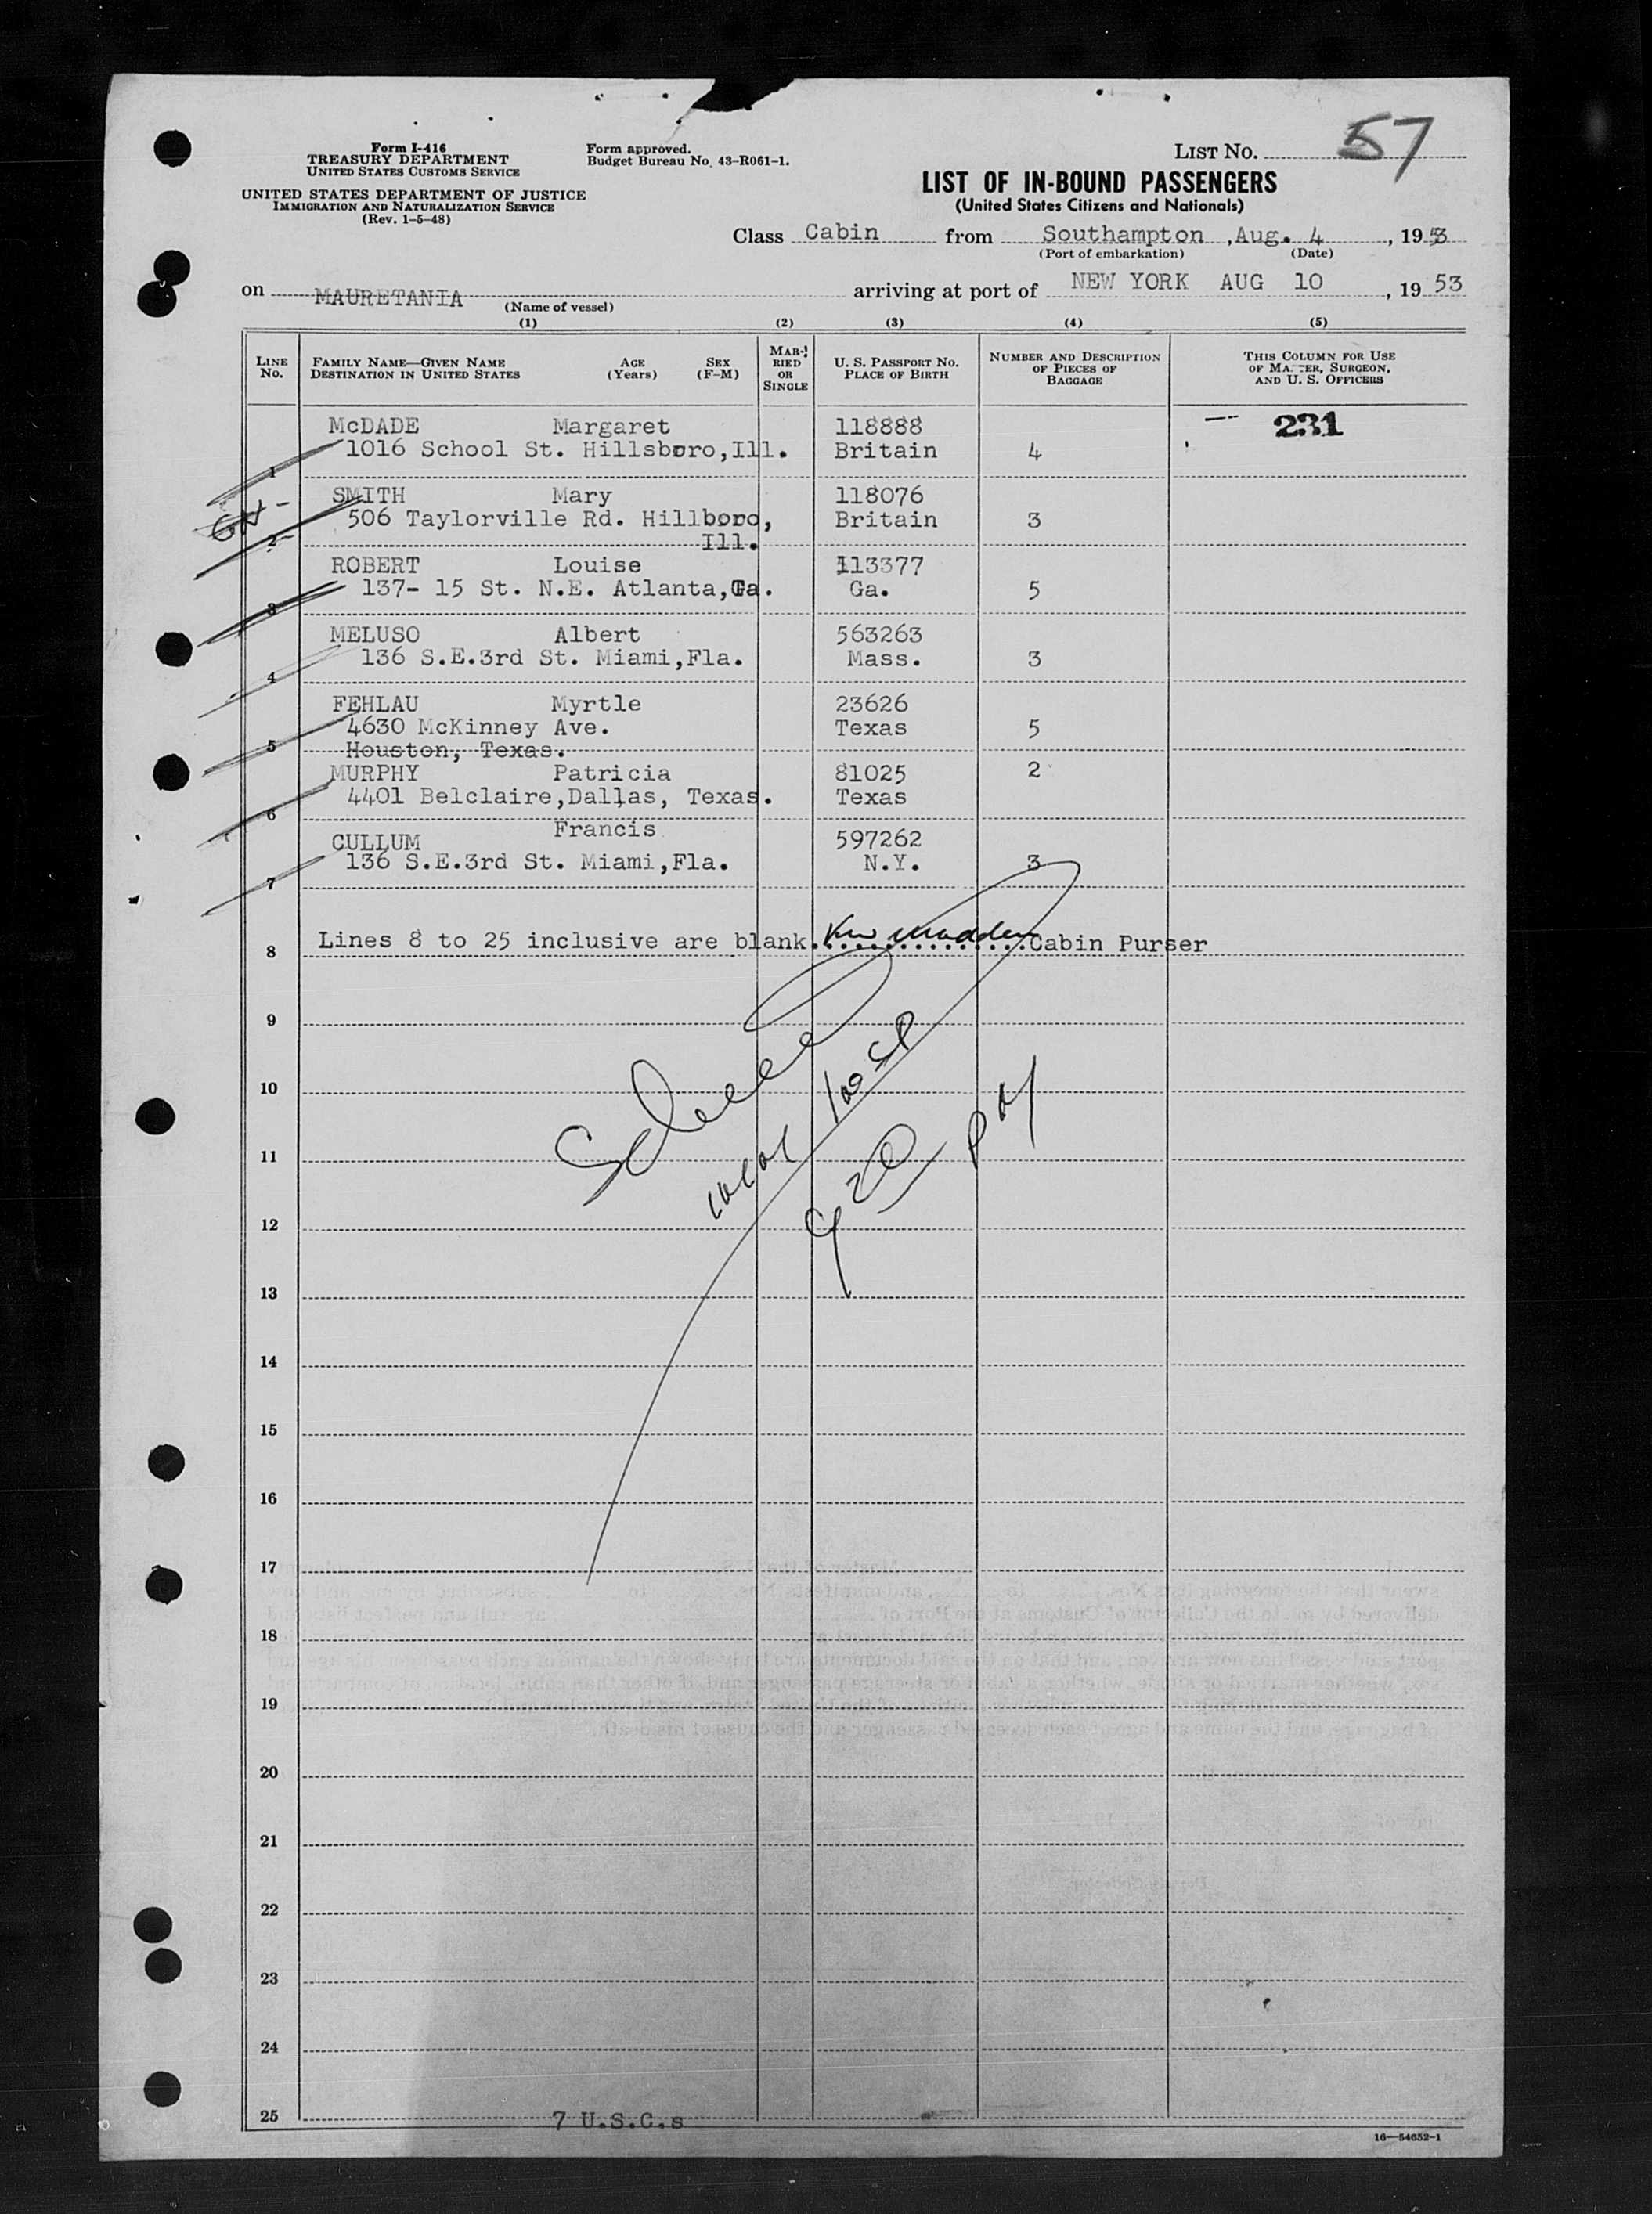 57
LIST NO.
Form I-416
TREASURY DEPARTMENT
UNITED STATES CUSTOMS SERVICE
UNITED STATES DEPARTMENT OF JUSTICE
IMMIGRATION AND NATURALIZATION SERVICE
(Rev. 1-5-48)
Form approved.
Budget Bureau No. 43-R061-1.
LIST OF IN-BOUND PASSENGERS
(United States Citizens and Nationals)
Class Cabin from Southampton , Aug. 4 , 1953
(Port of embarkation) (Date)
on MAURETANIA arriving at port of NEW YORK AUG 10 , 19 53
(Name of vessel)
(1) (2) (3) (4) (5)
LINE No. FAMILY NAME—GIVEN NAME DESTINATION IN UNITED STATES AGE (Years) SEX (F-M) MARRIED OR SINGLE U. S. PASSPORT NO. PLACE OF BIRTH NUMBER AND DESCRIPTION OF PIECES OF BAGGAGE THIS COLUMN FOR USE OF MASTER, SURGEON, AND U. S. OFFICERS
McDADE Margaret 118888 231
1 1016 School St. Hillsboro,Ill. Britain 4
SMITH Mary 118076
506 Taylorville Rd. Hillboro, Britain 3
2 Ill.
ROBERT Louise 113377
3 137- 15 St. N.E. Atlanta,Ga. Ga. 5
MELUSO Albert 563263
4 136 S.E.3rd St. Miami,Fla. Mass. 3
FEHLAU Myrtle 23626
4630 McKinney Ave. Texas 5
5 Houston, Texas.
MURPHY Patricia 81025 2
6 4401 Belclaire,Dallas, Texas. Texas
CULLUM Francis 597262
7 136 S.E.3rd St. Miami,Fla. N.Y. 3
8 Lines 8 to 25 inclusive are blank. Cabin Purser
9
10
11
12
13
14
15
16
17
18
19
20
21
22
23
24
25 7 U.S.C.s
16—54652-1